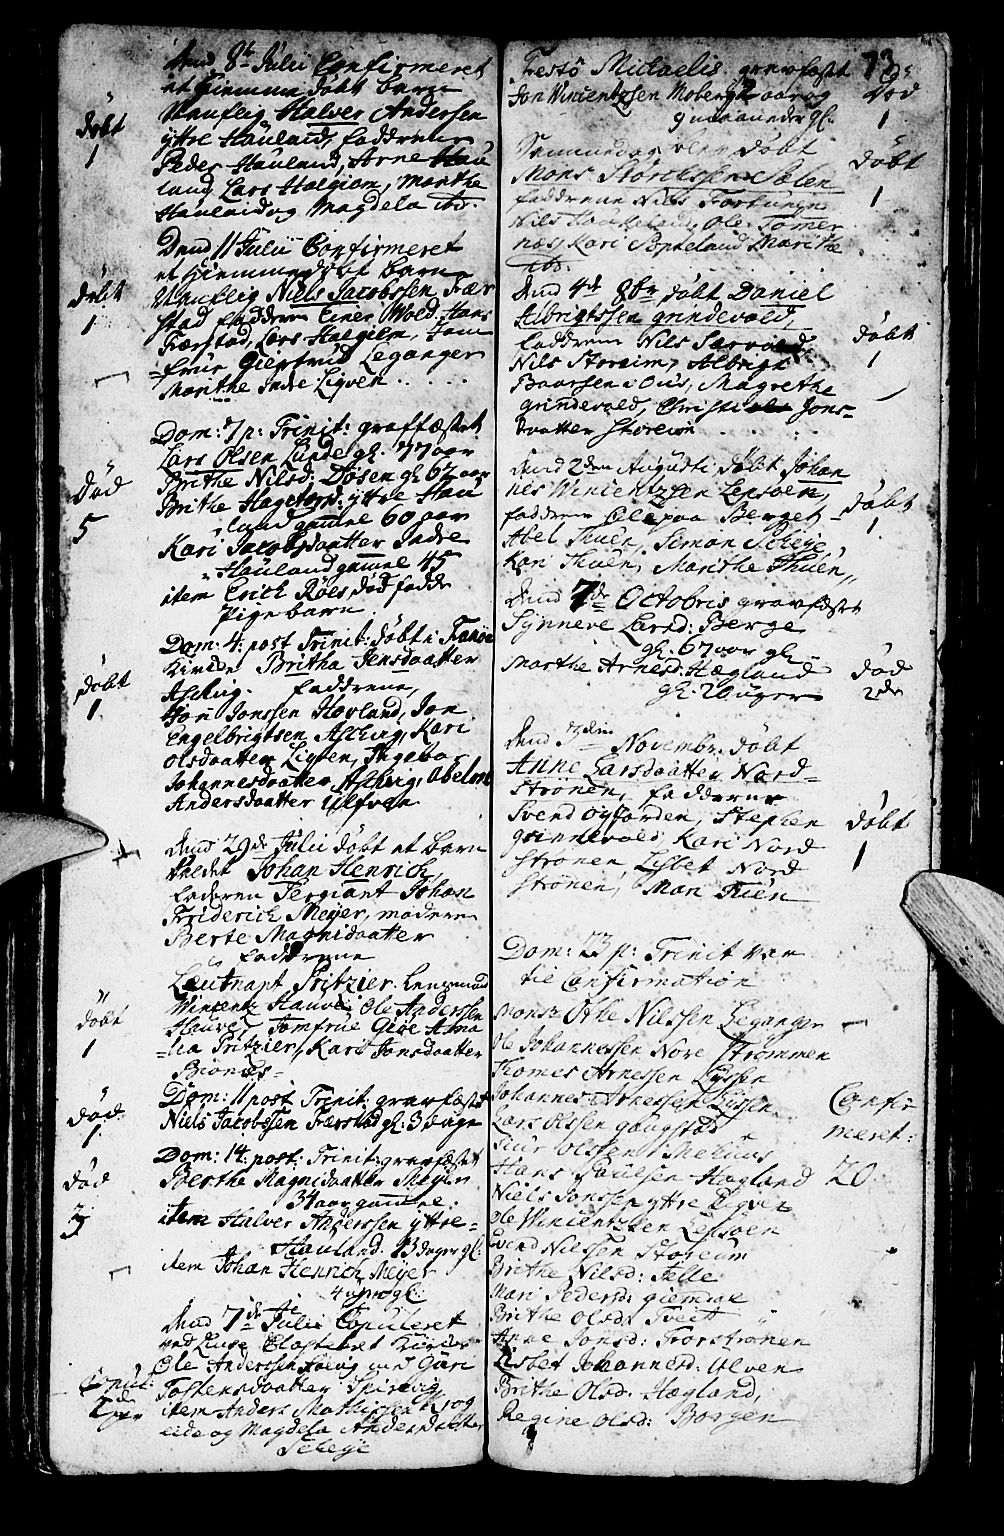 dend 8de Julii Confirmeret
et hiemme døbt barn
Nauflig Halver Andersen
yttre Hauland, faddrene
Peder Hauland, Arne Hau
land, Lars Halgiem, Marthe
Haulaid og Magdela ibd.
døbt
1
Dend 11 Julii Confirmeret
et hiemme døbt barn
Nauflig Niels Jacobssen Fær
stad faddrene Einer Wold, Hans
Færstad, Lars Halgiem, Jom
frue Giertrud Leganger
Marthe Indre Ligven
døbt
1
Dom: 7 p: Trinit: graffæstet
Lars Olsen Lunde gl. 77 aar
Brithe Nilsd: Døsen gl 67 aar
Brithe yttre Hau
land gamle 60 aar
Kari Jacobsdaatter Indre
Hauland gamle 45
item Erich Røes død fødde
Pigebarn
Død
5
Dom: 4. post Trinit: døbt i
Kirke Britha Jensdaatter
Aschvig. faddrene,
Jon Jonssen Hovland, Jon
Engelbrigtsen Aschvig, Kari
Olsdaatter Ligven, Ingebor
Johannesdaatter Aschvig, Abelone
Andersdaatter Ulfven
døbt
1
dend 29de Julii døbt et barn
kaldet Johan Henrich,
faderen Sergiant Johan
Friderich Meyer, moderen
Berte Magnidaatter
faddrene
Leutnant Fritzier, Lensmand
Wincentz Hauve, Ole Andersen
Hauve, Jomfrue Giøe Ama
lia Fritzier, Kari Jonsdaatter
Biones
døbt
1
Dom: 11 post Trinit: gravfæstet
Niels Jacobssen Færstad gl: 3 Uge
død
1.
Dom: 14. post: Trinit: gravfæstet
Berthe Magnidaatter Meyer
34 aar gammel.
item Halver Anderssen yttre
Hauland. 13 dager gl:
item Johan Henrich Meyer
4 uger gl:
død
3
dend 7de Julii Copuleret
ved Lyse Closteret Kirke
Ole Andersen og Guri
Tostensdaatter Spirevig
item Anders Mathissen Krog
eide og Magdela Andersdatter
Scheje
Copul:
2 par
73
Festo Michaelis gravfæst
Jon Wincentzsen Moberg 2 aar og
9 maaneder gl.
død
1
blev døbt
Mons Storchssen Solen
faddrene Nils
Nils Ole
Kari Marithe
ibd.
døbt
1
dend 4de 8br døbt Daniel
Albrigtssen grindevold,
faddrene Nils Sarvold
Nils Storeim, Albrigt
Baarsen i Ous, Magrethe
grindevold, Christi Jons
daatter Storeim
døbt
1
dend 2den Augusti døbt Johan
nes Wincentzsen Lepsøen,
faddrene Ole paa Berget
Abel Thuen, Simon Scheje
Kari Thuen, Marithe Thuen,,
døbt
1
dend 7de Octobris gravfæstet
Synneve Larsd: Berge
gl. 67 aar gl
Marthe Arnesd: Hægland
gl. 2 Uger
død
2de
dend Novembr. døbt
Anne Larsdaatter Nord
strønen, faddrene
Svend øyjorden, Stephen
grindevold, Kari Nord
strønen Lisbet Nord
strønen, Mari Tuen
døbt
1
Dom: 23 p: Trinit var
til Confirmation
Mons: Otte Nilssen Leganger
Ole Johannessen Nore Strømmen
Thomes Arnessen Lyssen
Johannes Arnessen Lyssen
Lars Olssen gaagstad
Siur Olssen
Hans Poulsen Hægland
Niels Jonssen yttre Ligven
Ole Wincentzsen Lepsøen
Svend Nilssen Storeim
Brithe Nilsd: Telle
Mari Pedersd: giemdal
Brithe Olsd: Tveit
Anne Jonsd: Forstrønen
Lisbet Johannesd: Ulven
Brithe Olsd: Hægland,
Regine Olsd: Borgen
Confir
meret:
20